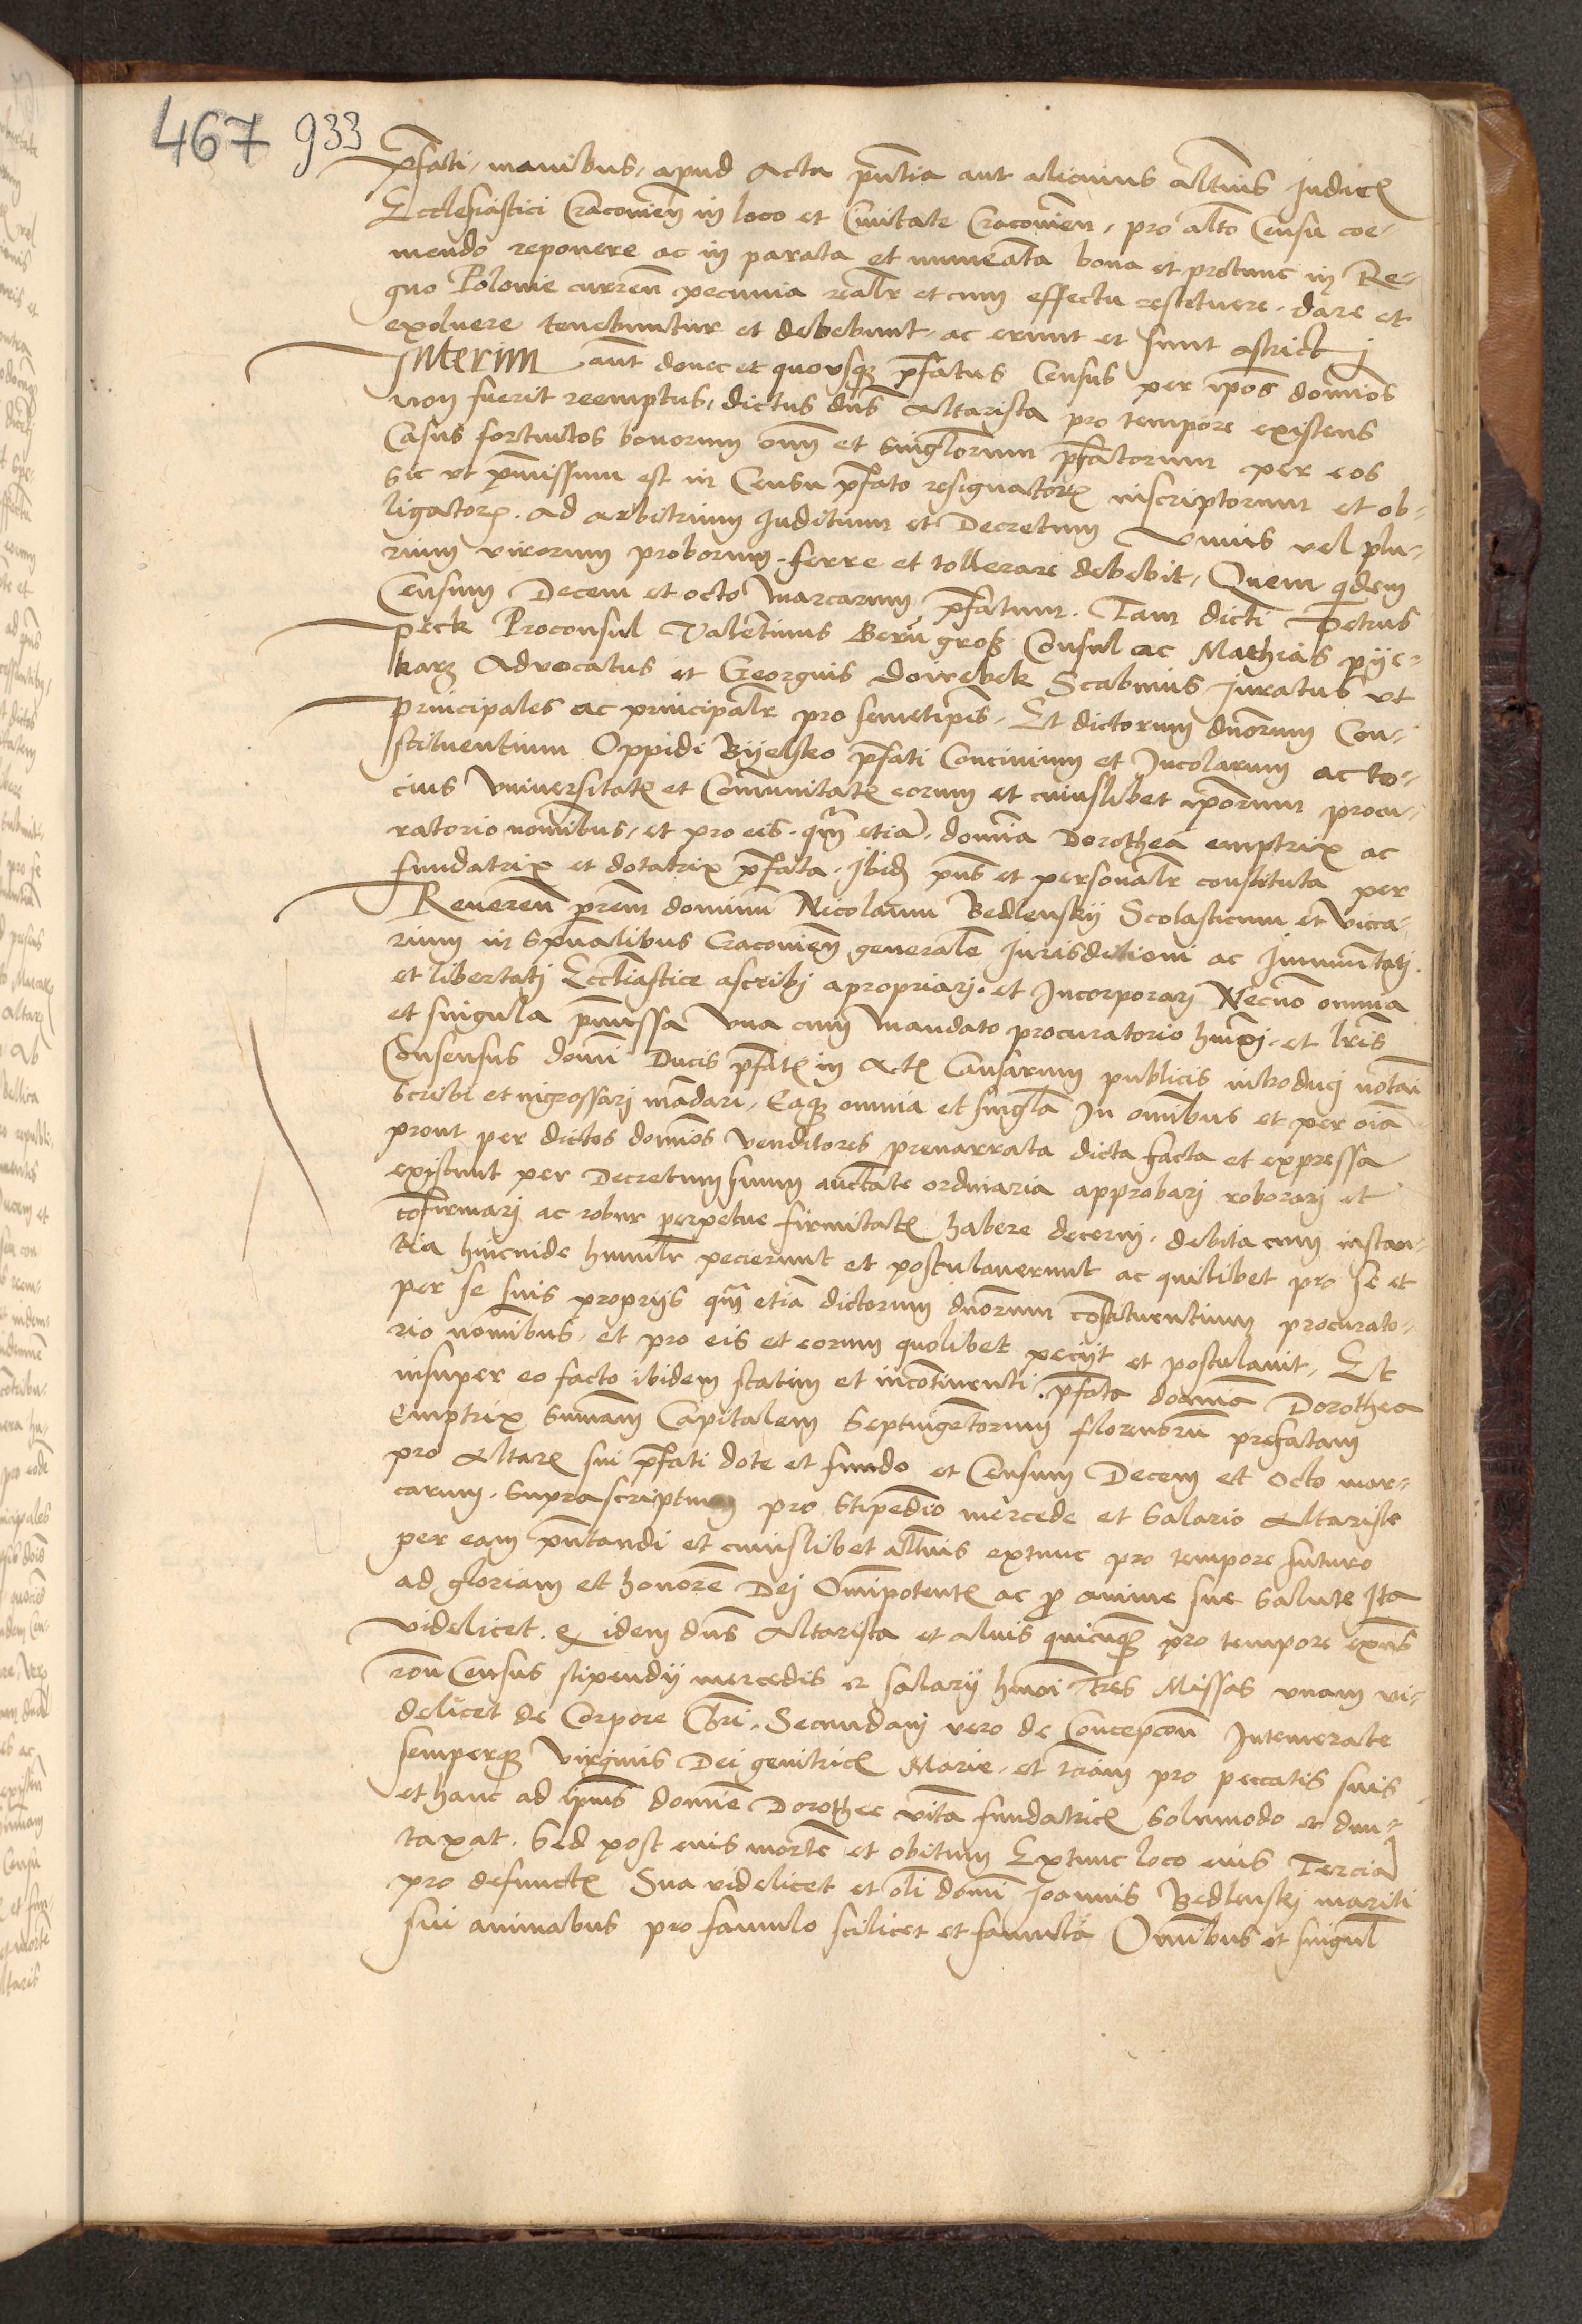 467 933
p̄fati, manibus, apud Acta pn̄tia aut alicuius alt̄ius Judicꝭ
Ecclesiastici Cracovień in loco et Civitate Cracovień, pro alt̄o Censu coe-
mendo reponere ac in parata et numerāta bona et protunc in Re-
gno Polonie curreń pecunia realr̄ et cum effectu restituere, dare et
exoluere tenebuntur et debebunt, ac erunt et sunt astricti
Interim aūt donec et quousqꝫ p̄fatus Census per ip̄os domīos
non fuerit reemptus, dictus dn̄s Altarista pro tempore existens
Casus fortuitos bonorum om̄ et singlorum p̄fatorum per eos
sic ut p̄missum est in Censu p̄fato resignatorꝝ inscriptorum et ob-
ligatorꝝ. Ad arbitrium Juditium et Decretum Unius vel plu-
rium virorum proborum, ferre et tollerare debebit, Quem qdem
Censum Decem et octo Marcarum p̄fatum. Tam dicti Petrus
peck Proconsul Valentinus Berūgroß Consul ac Mathias pije-
karz Advocatus et Georgius doirebek Scabinus Juratus ut
Principales ac principalr̄ pro semetip̄is, Et dictorum dn̄orum Con-
stituentium Oppidi Bijelsko p̄fati Concivium et Incolarum ac to-
cius Universitatꝭ et Com̄unitatꝭ eorum et cuiuslibet ip̄orum procu-
ratorio nom̄ibus, et pro eis, q̄m etiā, domīa Dorothea emptrix ac
fundatrix et dotatrix p̄fata, Ibidē pn̄s et personalr̄ constituta per
Reuereń pr̄em dominū Nicolaum Bedlenskij Scolasticum et Vica-
rium in sp̄ualibus Cracovień generalē Jurisditioni ac Immunitati
et libertati Eccl̄iastice ascribi apropriari, et Incorporari Necnō omnia
et singula p̄missa una cum mandato procuratorio hm̄oi, et lr̄is
Consensus domī Ducis p̄fatꝭ in Actꝭ Causarum publicis introduci notāi
scribi et ingrossari mādari, Eaqꝫ omnia et singla In om̄ibus et per oīa
prout per dictos domīos venditores prenarrata dicta facta et expressa
existunt per Decretum suum auct̄ate ordinaria approbari roborari et
cōfirmari ac robur perpetue firmitatꝭ habere decerni, debita cum instan-
tia hincinde humilr̄ pecierunt et postulaverunt ac quilibet pro se et
per se suis proprijs q̄m etiā dictorum dn̄orum cōstituentium procurato-
rio nom̄ibus, et pro eis et eorum quolibet pecijt et postulavit, Et
insuper eo facto ibidem statim et incōtinenti, p̄fata domīa Dorothea
Emptrix sum̄am Capitalem Septuingētorum florenorū prefatam
pro Altarꝭ sui p̄fati dote et fundo et Censum Decem et Octo mar-
carum, suprascriptum pro Stipēdio mercede et Salario Altariste
per eam pn̄tandi et cuiuslibet alt̄ius extunc pro tempore futuro
ad gloriam et honorē Dei Om̄ipotentꝭ ac ꝓ anime sue Salute Ita
videlicet, ꝙ idem dn̄s Altarista et alius quicūqꝫ pro tempore exn̄s
rōn Census stipendij mercedis et salarij hm̄oi Tres Missas unam vi-
delicet de Corpore Chr̄i, Secundam vero de Concepcōn Intemerate
semperqꝫ Virginis Dei genitricꝭ Marie, et tciam pro peccatis suis
et hanc ad ip̄ius domīe Dorothee vitā fundatricꝭ solum̄odo et dun-
taxat, Sed post eius mortē et obitum Extunc loco eius Tercia
pro defunctꝭ Sua videlicet et oli domī Joannis Bedlenskj mariti
sui animabus pro famulo scilicet et famula Om̄ibus et singul